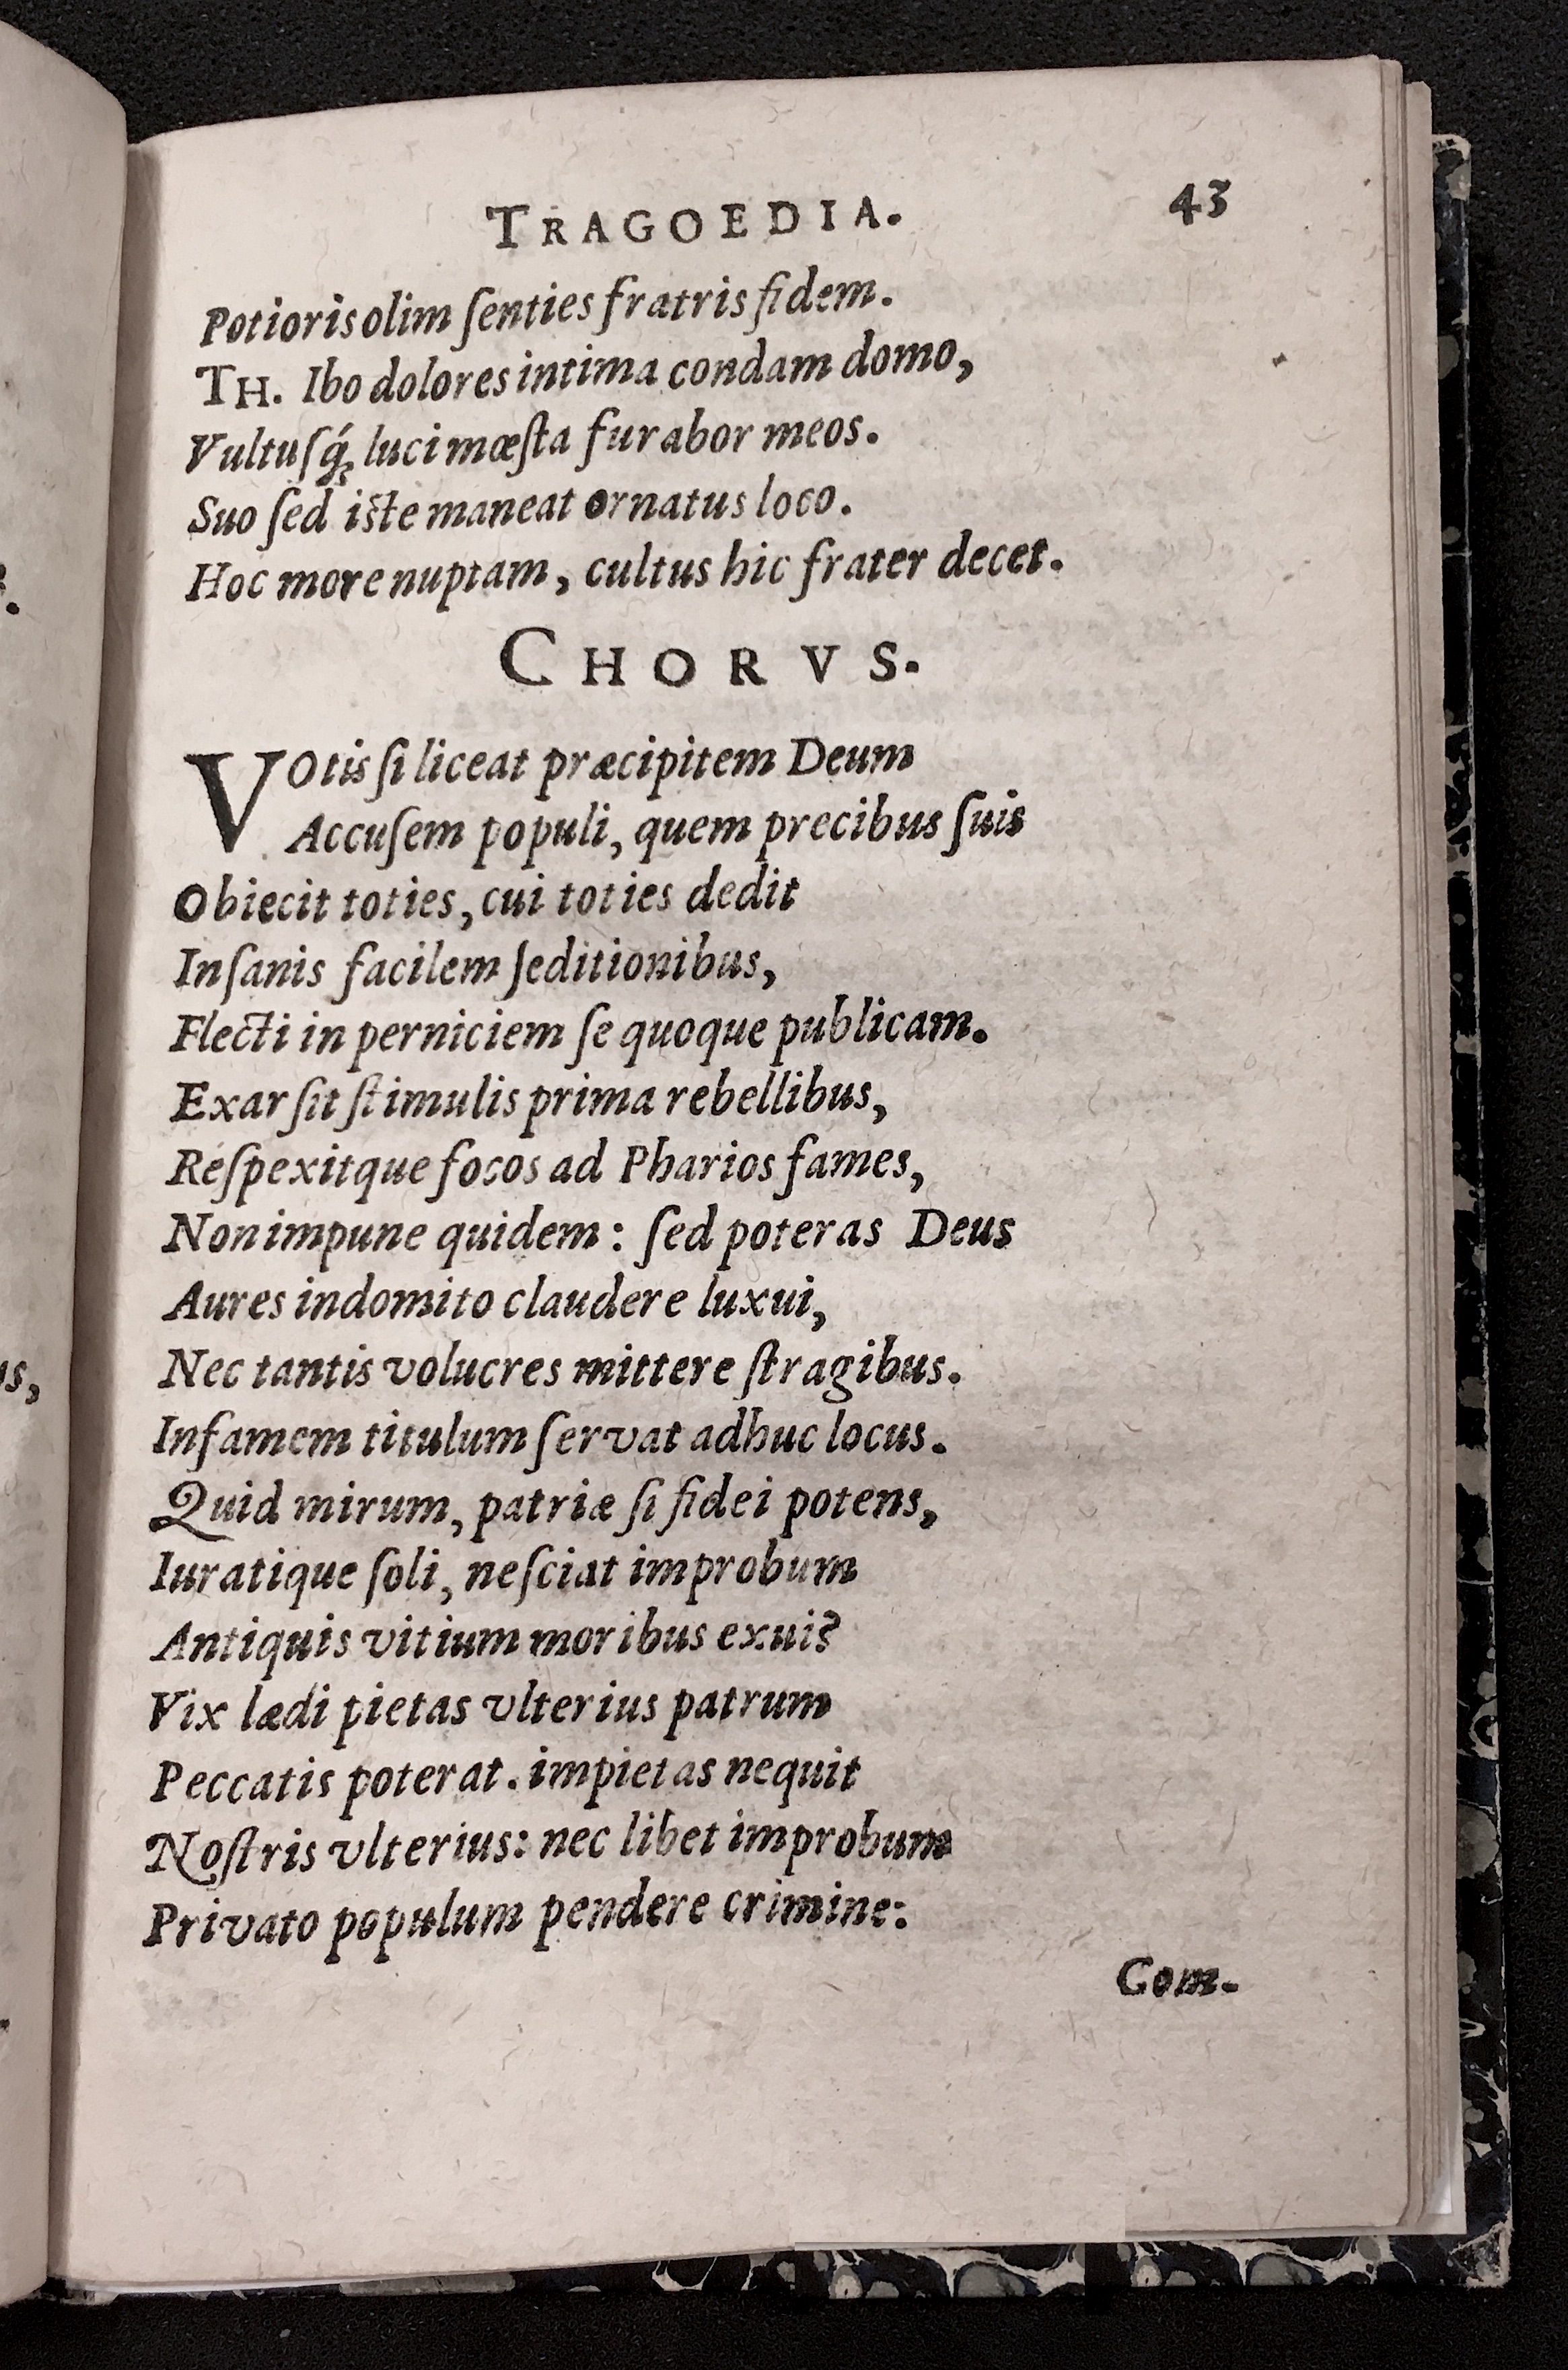 TRAGOEDIA. 43
Potioris olim ſenties fratris fidem.
TH. Ibo dolores intima condam domo,
Vultuſq́; luci mœſta furabor meos.
Suo ſed iſte maneat ornatus loco.
Hoc more nuptam, cultus hic frater decet.
CHORVS.
VOtis ſi liceat præcipitem Deum
Accuſem populi, quem precibus ſuis
Obiecit toties, cui toties dedit
Inſanis facilem ſeditionibus,
Flecti in perniciem ſe quoque publicam.
Exarſit ſtimulis prima rebellibus,
Reſpexitque focos ad Pharios fames,
Non impune quidem: ſed poteras Deus
Aures indomito claudere luxui,
Nec tantis volucres mittere ſtragibus.
Infamem titulum ſervat adhuc locus.
Quid mirum, patriæ ſi fidei potens,
Iuratique ſoli, neſciat improbum
Antiquis vitium moribus exui?
Vix lædi pietas vlterius patrum
Peccatis poterat. impietas nequit
Noſtris vlterius: nec libet improbum
Privato populum pendere crimine:
Com-
us,